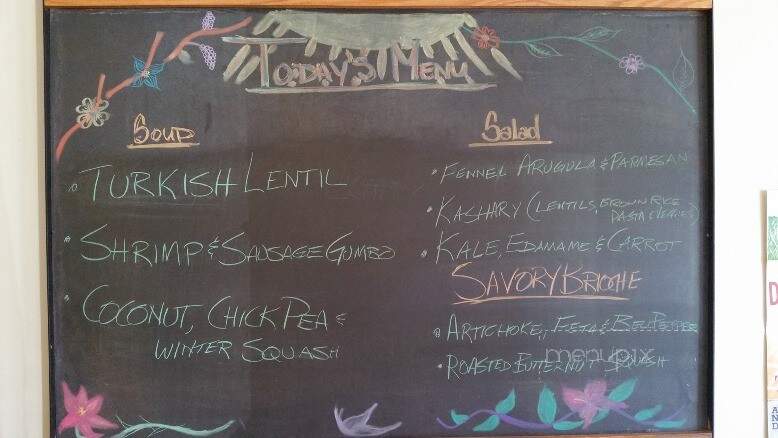 TODAY'S MENU
Soup
• TURKISH LENTIL
• SHRIMP & SAUSAGE GUMBO
• COCONUT, CHICK PEA &
WINTER SQUASH
Salad
• FENNEL ARUGULA & PARMESAN
• KASHARY (LENTILS, BROWN RICE
PASTA & VEGGIES)
• KALE, EDAMAME & CARROT
SAVORY BRIOCHE
• ARTICHOKE, FETA & BELL PEPPER
• ROASTED BUTTERNUT SQUASH
menupix
D
A
N
D